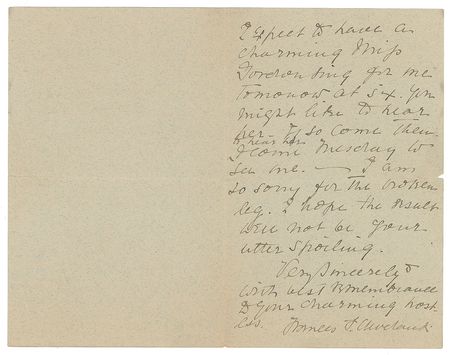 I expect to have a
charming Miss
Gordon sing for me
tomorrow at six. You
might like to hear
her. If so come then.
to hear her
& come Tuesday to
see me. — I am
so sorry for the broken
leg. I hope the result
will not be your
utter spoiling.
Very Sincerely &
with best remembrance
to your charming host-
ess. Frances F. Cleveland